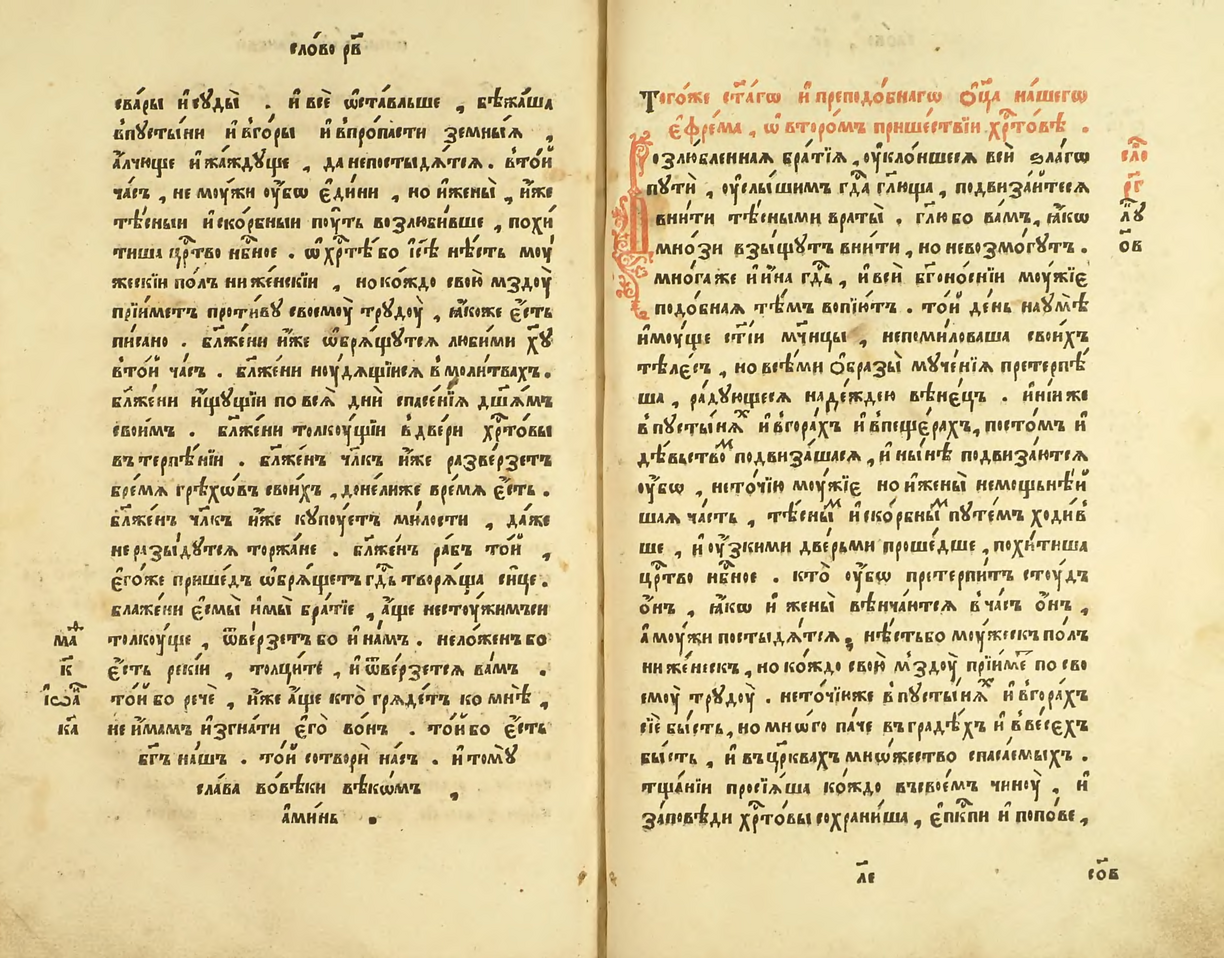 сло́во рв҃
сва́ры и҆ сꙋды̀ . и҆ всѐ ѡ҆ста́вльше , бѣжа́ша
в пꙋсты́ни и҆ в го́ры и҆ в про́пасти земны́ѧ ,
а҆́лчюще и҆ жа́ждꙋще , да не постыдѧ́тсѧ . в то́й
ча́съ , не моу́жи оу҆́бѡ є҆ди́ни , но и҆ жены̀ , и҆́же
тѣ́сныи и҆ ско́рбныи пꙋ́ть возлюби́вше , похи
тиша цр҃тво нбⷭ҇ное . ѡ҆ хрⷭ҇тѣ́ бо і҆с҃ѣ нѣ́сть моу́
жескїи по́лъ ни же́нскїи , но ко́ждо свою̀ мздоу̀
прїи́метъ проти́вꙋ своемоу̀ трꙋдоу̀ , ꙗ҆́коже є҆́сть
пи́сано . бл҃же́ни и҆́же ѡ҆брѧ́щꙋтсѧ лю́бими хꙋ҃
в то́й ча́съ . бл҃же́ни ноу́дѧщїисѧ в моли́твахъ .
бл҃же́ни и҆́щꙋщїи по всѧ̀ дни̑ спасе́нїѧ дш҃ѧ́мъ
свои́мъ . бл҃же́ни толкоу́щїи в две́ри хрⷭ҇то́вы
въ терпѣ́нїи . бл҃же́нъ чл҃къ и҆́же разве́рзетъ
бре́мѧ грѣхѡ́въ свои́хъ , до́нелиже вре́мѧ є҆́сть .
бл҃же́нъ чл҃къ и҆́же кꙋпꙋ́етъ ми́лости , да́же
не разы́дꙋтсѧ торжа́не . бл҃же́нъ ра́бъ то́й ,
є҆го́же прише́дъ ѡ҆брѧ́щетъ гдⷭ҇ь творѧ́ща си́це .
блаже́ни є҆смы̀ и҆ мы̀ бра́тїе , а҆́ще не стоу́жимъси
толкоу́ще , ѿве́рзетъ бо и҆ на́мъ . не ло́женъ бо
є҆́сть реки́и , толцы́те , и҆ ѿве́рзетсѧ ва́мъ .
то́й бо речѐ , и҆́же а҆́ще кто̀ грѧде́тъ ко мнѣ̀ ,
не и҆́мамъ и҆згна́ти є҆го̀ во́нъ . то́й бо є҆́сть
бг҃ъ на́шъ . то́й сотворѝ на́съ . и҆ томꙋ̀
сла́ва во вѣ́ки вѣкѡ́мъ ,
а҆ми́нь .
маⷴ҇
к҃
і҆ѡа
ка҃
Того́же ст҃а́гѡ и҆ преподо́бнагѡ ѻ҆ц҃а̀ на́шегѡ
є҆фре́ма , ѡ҆ второ́мъ прише́ствїи хрⷭ҇то́вѣ .
Возлю́бленнаѧ бра́тїѧ , оу҆кло́ншеесѧ всѝ блага́гѡ
пꙋтѝ , оу҆слы́шимъ гдⷭ҇а гл҃юща , подвиза́йтеесѧ
вни́ти тѣ́сными враты̀ . гл҃ю бо ва́мъ , ꙗ҆́кѡ
мно́зи взы́щꙋтъ вни́ти , но невозмо́гꙋтъ .
мно́га же и҆ и҆́на гдⷭ҇ь , и҆ всѝ бг҃оно́снїи моу́жїе
подо́бнаѧ тѣ́мъ вопїю́тъ . то́й де́нь на оу҆мѣ̀
и҆моу́ще ст҃і́и мч҃ницы , не поми́ловаша свои́хъ
тѣле́съ , но всѣ́ми ѻ҆́бразы мꙋче́нїѧ претерпѣ́
ша , ра́дꙋющеесѧ наде́ждею вѣне́цъ . и҆ні́и же
в пꙋсты́нѧⷯ и҆ в гора́хъ и҆ в пеще́рахъ , посто́мъ и҆
дѣ́вьствоⷨ подвиза́шасѧ , и҆ ны́нѣ подвиза́ютсѧ
оу҆́бѡ , не то́чїю моу́жїе но и҆ жены̀ немощьнѣ́й
шаѧ ча́сть , тѣ́сныⷨ и҆ ско́рбныⷨ пꙋте́мъ ходи́в
ше , и҆ оу҆́зкими две́рьми проше́дше , похи́тиша
цр҃тво нбⷭ҇ное . кто̀ оу҆́бѡ претерпи́тъ стоу́дъ
ѻ҆́нъ , ꙗ҆́кѡ и҆ жены̀ вѣнча́ютсѧ в ча́съ ѻ҆́нъ ,
а҆ моу́жи постыдѧ́тсѧ , нѣ́сть бо моу́жескъ по́лъ
ни же́нескъ , но ко́ждо свою̀ мздоу̀ прїи́меⷮ по сво
емоу̀ трꙋдоу̀ . не то́чїи же в пꙋсты́нѧⷯ и҆ в гора́хъ
сїѐ бы́сть , но мно́го па́че въ градѣ́хъ и҆ в ве́сехъ
бы́сть , и҆ въ цр҃квахъ мно́жество спаса́емыхъ .
тща́нїи просїѧ́ша ко́ждо въ свое́мъ чиноу̀ , и҆
за́повѣди хрⷭ҇то́вы сохрани́ша , є҆пⷭ҇кпи и҆ попо́ве ,
сло
рг҃
лꙋ
ов
ле
сов